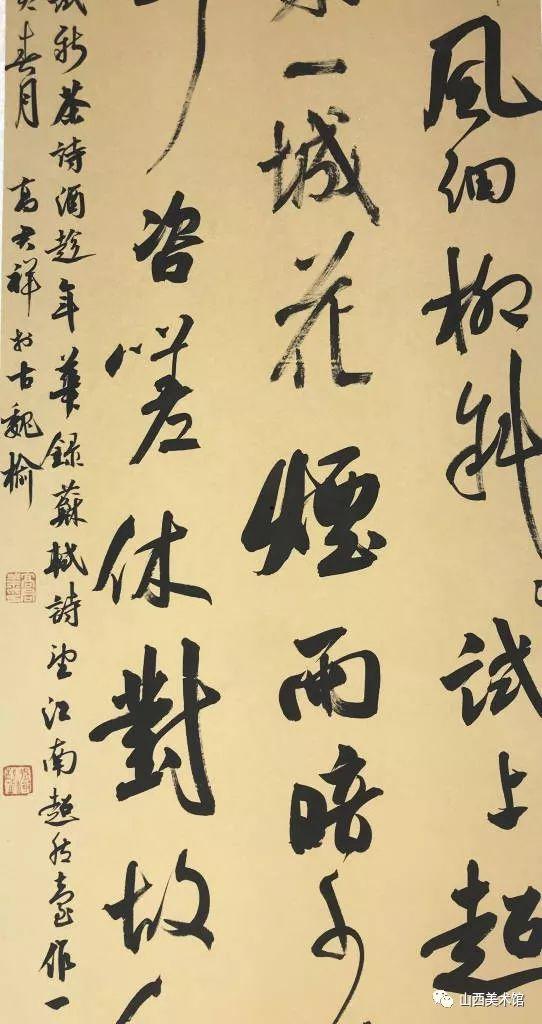 風細柳斜〻試上超
一城花煙雨暗千
咨嗟休對故
試新茶詩酒趁年華錄蘇軾詩望江南超然臺作一
春月高祥於古魏榆
山西美术馆